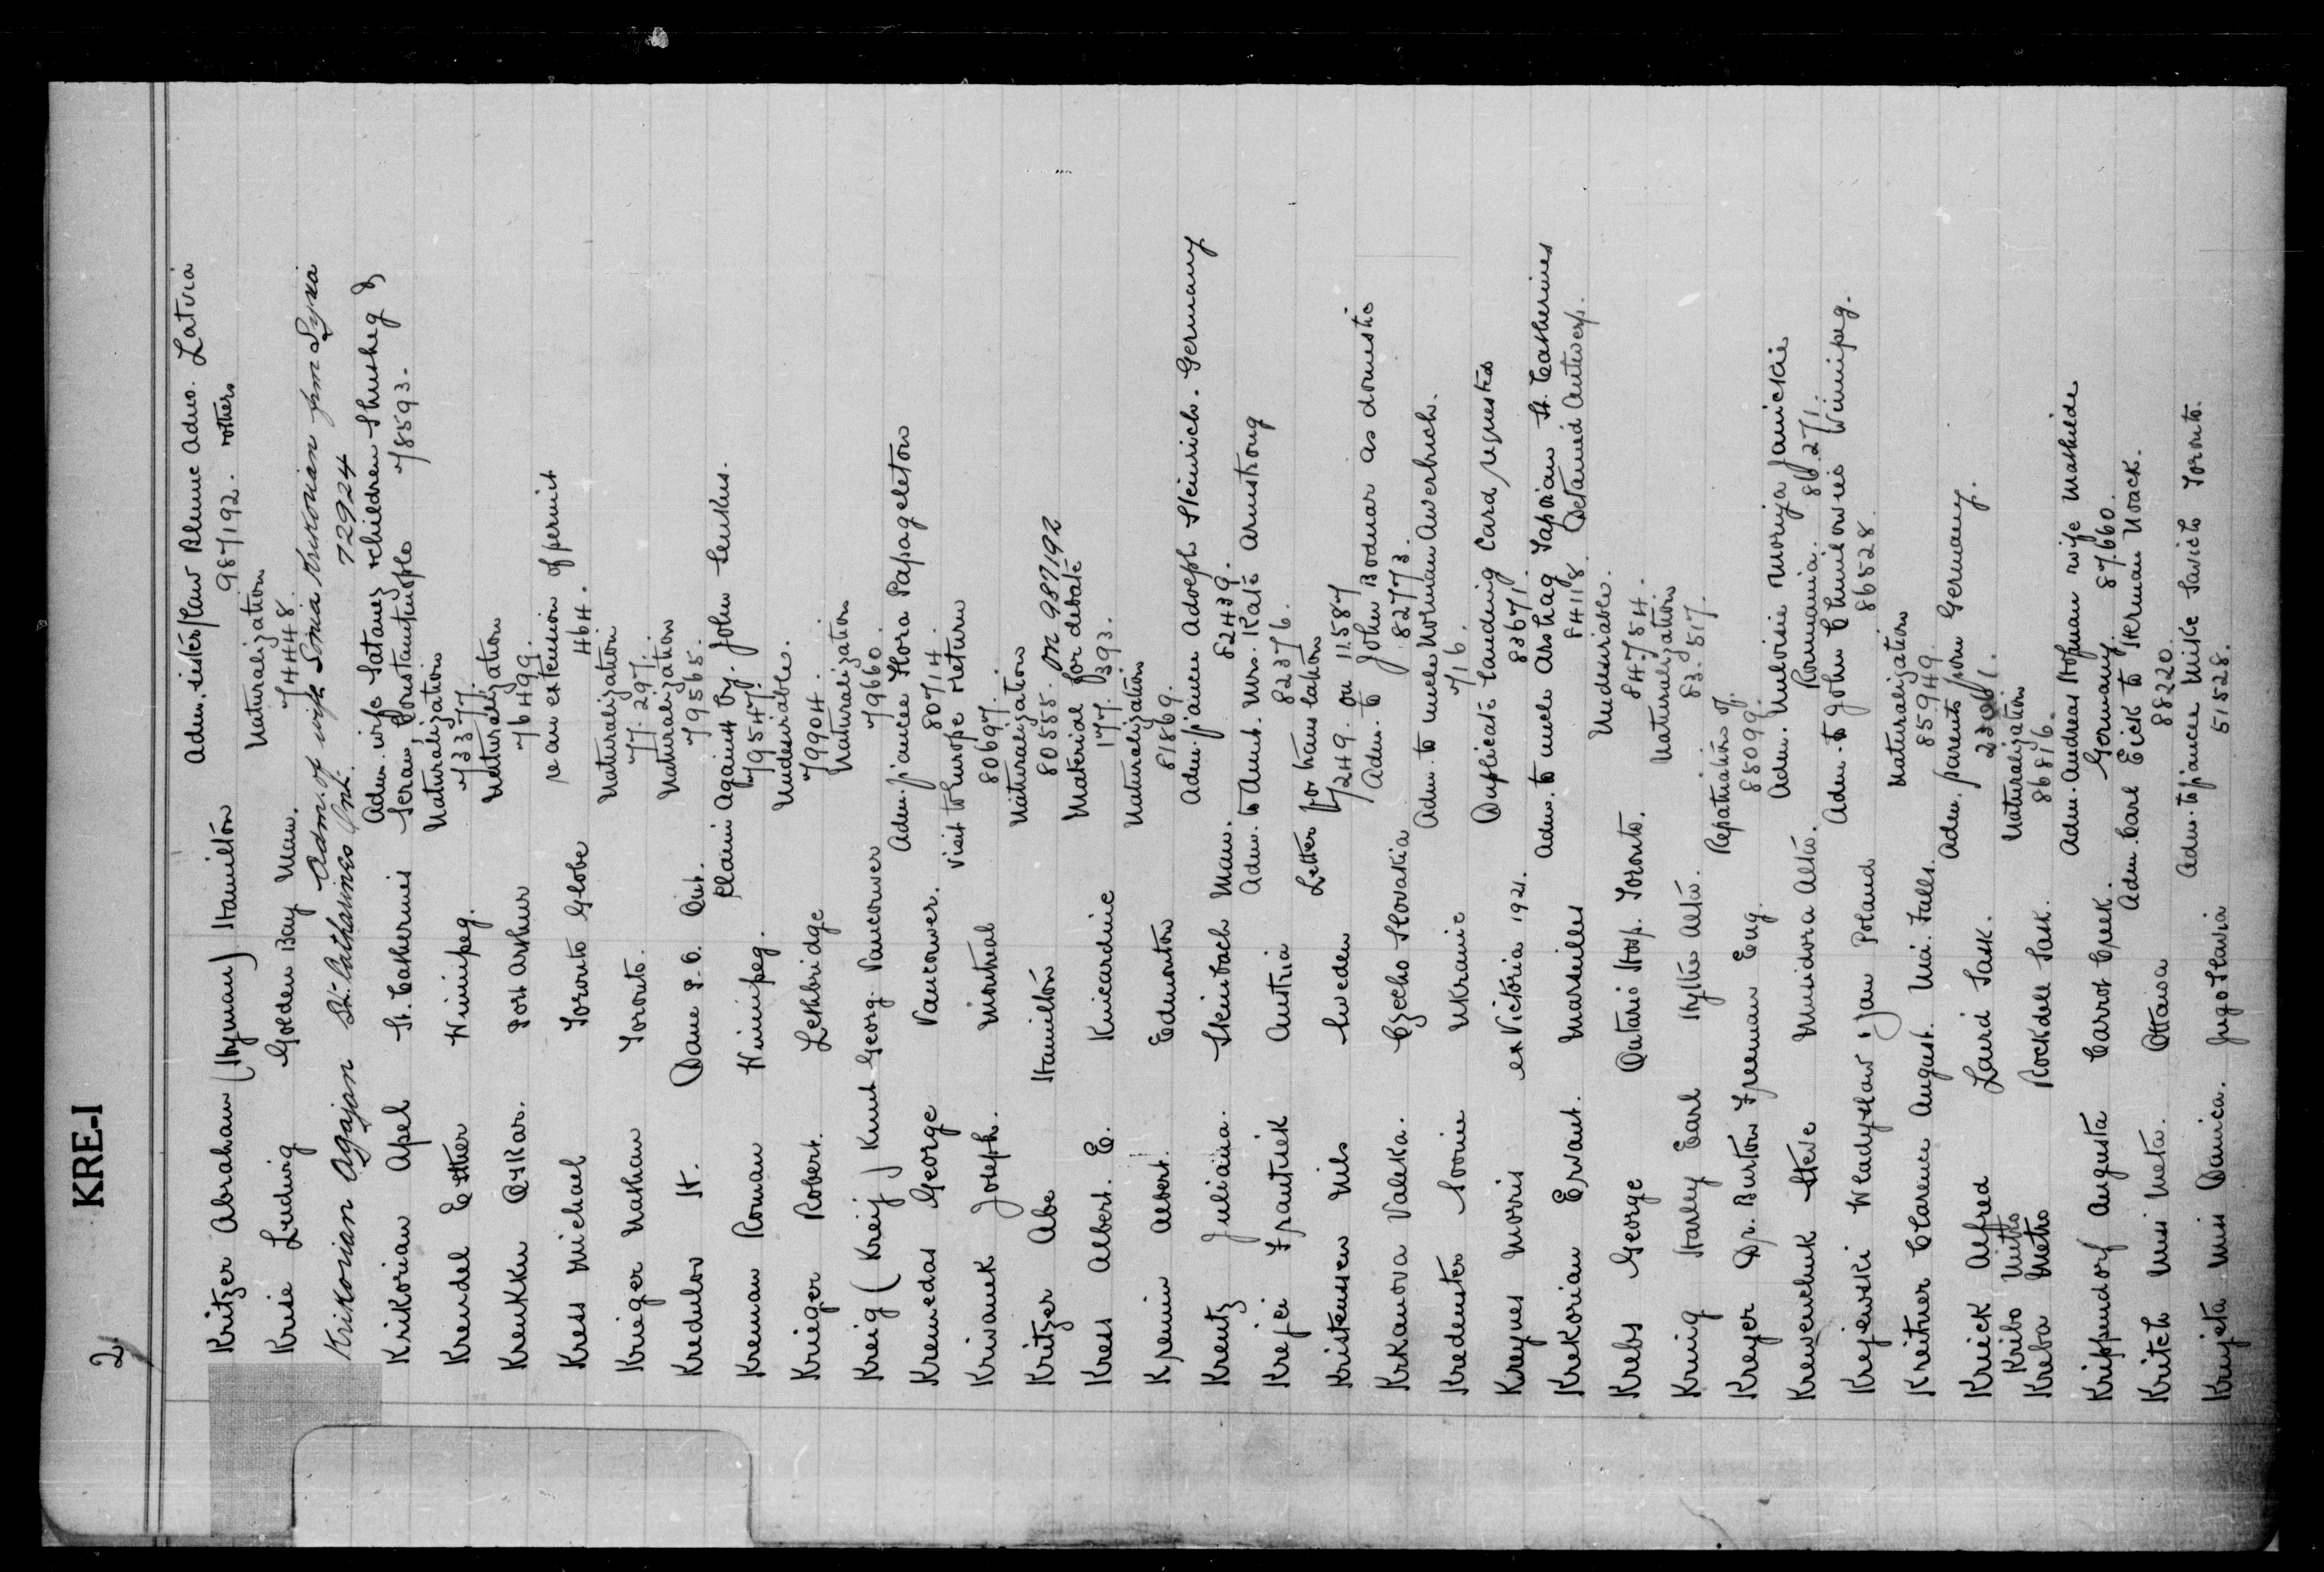 2
KRE-I
Kritzer Abraham (Hyman) Hamilton Adm. sister/law Blume Adno. Latvia
987192. rothers
Kruse Ludwig Golden Bay Man. Naturalization
74448.
Krikorian Agajan St. Catharines Ont. Adm. of wife Sinia Krikorian frm Syria
72924
Krikorian Apel St. Catherines Adm. wife Satanez & children Shusheg &
Seran, Constantinople 78593.
Krendel Esther Winnipeg. Naturalization
73377.
Krenkku Oskar. Port Arthur Naturalization
76499.
Kress Michael Toronto Globe re an extension of permit
464.
Krieger Nathan Toronto. Naturalization
77.297.
Kredulov H. Dane P.O. Ont. Naturalization
79565.
Kreman Roman Winnipeg. Claim Against by. John Senkus.
79547.
Krieger Robert. Lethbridge Undesirables.
79904.
Kreig (Kreij) Knut Georg. Vancouver Naturalization
79660.
Kremedas George Vancouver. Adm. fiancee Flora Papageleton
80714.
Krivanek Joseph. Montreal Visit to Europe & return
80697.
Kritzer Abe Hamilton Naturalization
80555. on 987192
Kress Albert. E. Kincardine Material for debate
177.393.
Kremin Albert. Edmonton Naturalization
81869.
Kreutz Juliana. Steinbach Man. Adm. fiancee Adolph Heinrich. Germany
82439.
Krejci Frantisek Austria Adm. to Aunt. Mrs. Kate Armstrong
82376.
Kristensen Nils Sweden Letter for translation
7249. on 11587
Krkanova Valeka. Czecho Slovakia Adm. to John Bodnar as domestic
82773.
Kredenster Sorrie Ukraine Adm. to uncle Norman Averbuch.
716.
Kreynes Morris ex Victoria 1921. Duplicate Landing Card requested
83671.
Krekorian Ervant. Marseilles Adm. to uncle Arshag Taporian St. Catherines
84118. Detained Antwerp.
Krebs George Ontario Hosp. Toronto. Undesirable.
84784.
Krunig Harley Earl Hythe Alta. Naturalization
83.517.
Kreyer Dr. Burton Freeman Eng. Repatriation of.
85099.
Krewenchuk Steve Musidora Alta. Adm. Mulvisie Morija Janickie
Roumania. 86.271.
Krejewski Wladyslaw & Jan Poland Adm. to John Chmilowsies Winnipeg.
86528.
Kreitner Clarence August. Nia. Falls. Naturalization
85949.
Krieck Alfred Laird Sask. Adm. parents from Germany.
23001.
Kribo Mitro
Kreba Metro Rockdale Sask. Naturalization
86816.
Krippendorf Augusta Carrot Creek. Adm. Andreas Hofman wife Mathilde
Germany. 87660.
Kritch Miss Meta. Ottawa Adm. Carl Eick to Herman Noack.
88220.
Krnjeta Miss Danica. Jugo Slavia Adm. to fiance Mike Savich Toronto.
51528.